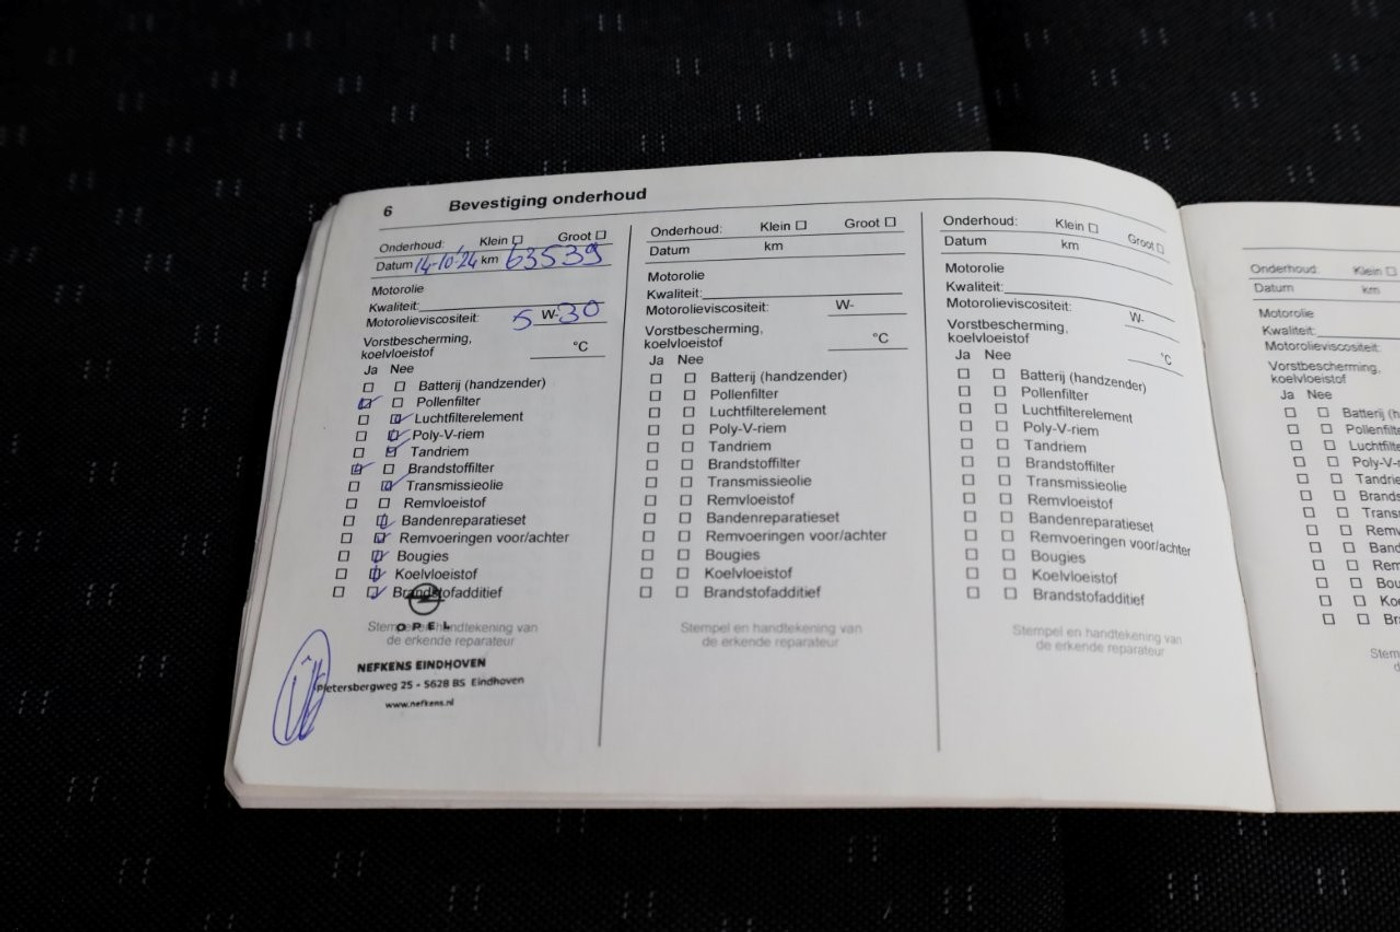 6 Bevestiging onderhoud
Onderhoud: Klein ☐ Groot ☐
Datum 14-10-24 km 63539
Motorolie
Kwaliteit:
Motorolieviscositeit: 5 W-30
Vorstbescherming,
koelvloeistof °C
Ja Nee
Batterij (handzender)
Pollenfilter
Luchtfilterelement
Poly-V-riem
Tandriem
Brandstoffilter
Transmissieolie
Remvloeistof
Bandenreparatieset
Remvoeringen voor/achter
Bougies
Koelvloeistof
Brandstofadditief
OPEL
Stempel en handtekening van
de erkende reparateur
NEFKENS EINDHOVEN
Pietersbergweg 25 - 5628 BS Eindhoven
www.nefkens.nl
Onderhoud: Klein ☐ Groot ☐
Datum km
Motorolie
Kwaliteit:
Motorolieviscositeit: W-
Vorstbescherming,
koelvloeistof °C
Ja Nee
Batterij (handzender)
Pollenfilter
Luchtfilterelement
Poly-V-riem
Tandriem
Brandstoffilter
Transmissieolie
Remvloeistof
Bandenreparatieset
Remvoeringen voor/achter
Bougies
Koelvloeistof
Brandstofadditief
Stempel en handtekening van
de erkende reparateur
Onderhoud: Klein ☐ Groot ☐
Datum km
Motorolie
Kwaliteit:
Motorolieviscositeit: W-
Vorstbescherming,
koelvloeistof °C
Ja Nee
Batterij (handzender)
Pollenfilter
Luchtfilterelement
Poly-V-riem
Tandriem
Brandstoffilter
Transmissieolie
Remvloeistof
Bandenreparatieset
Remvoeringen voor/achter
Bougies
Koelvloeistof
Brandstofadditief
Stempel en handtekening van
de erkende reparateur
Onderhoud: Klein ☐
Datum km
Motorolie
Kwaliteit:
Motorolieviscositeit:
Vorstbescherming,
koelvloeistof
Ja Nee
Batterij (h
Pollenfilte
Luchtfilte
Poly-V-r
Tandrie
Brands
Trans
Remv
Band
Rem
Bou
Ko
Br
Stem
d